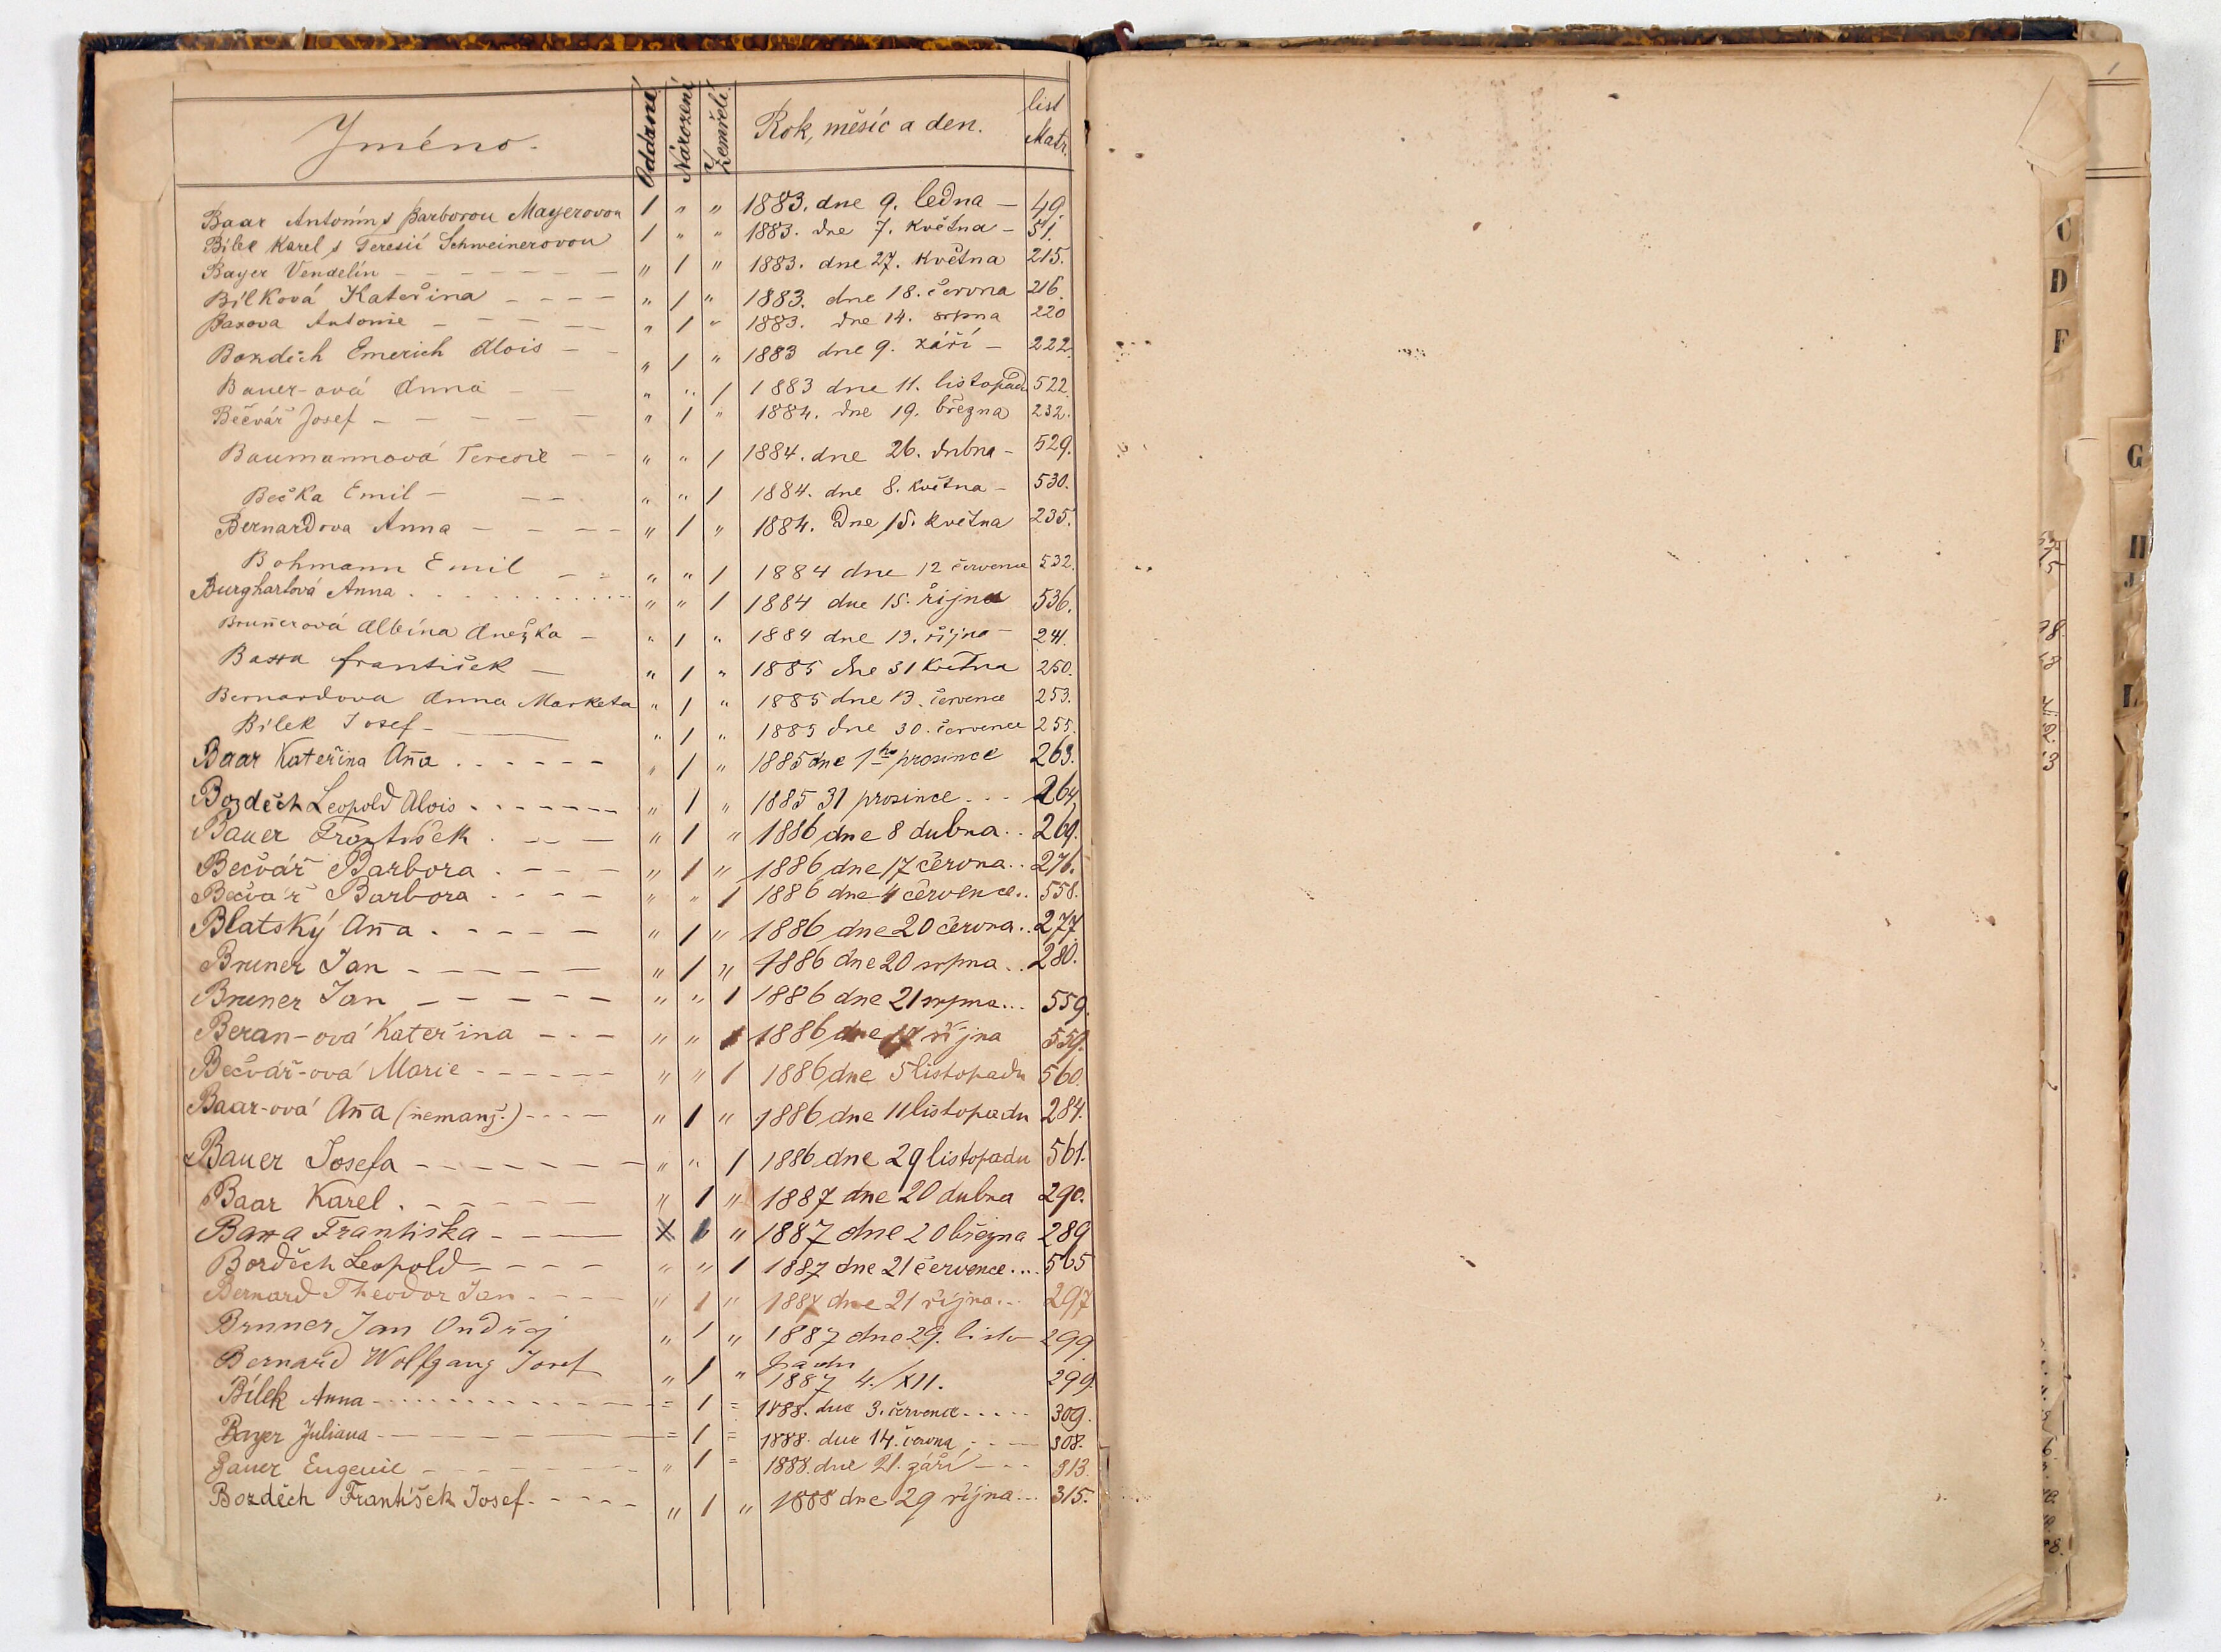 Jméno. Oddaní Narození Zemřelí. Rok, měsíc a den. list Matr.
Baar Antonín s Barborou Mayerovou 1 " " 1883. dne 9. ledna — 49.
Bílek Karel s Teresií Schweinerovou 1 " " 1883. dne 7. května — 51.
Bayer Vendelín — — — — — — " 1 " 1883. dne 27. května 215.
Bílková Kateřina — — — — " 1 " 1883. dne 18. června 216.
Baxova Antonie — — — — " 1 " 1883. dne 14. srpna 220
Bozděch Emerich Alois — — " 1 " 1883 dne 9. září — 222.
Bauer-ová Anna — — " " 1 1883 dne 11. listopadu 522.
Bečvář Josef — — — — — " 1 " 1884. dne 19. března 232.
Baumannová Teresie — — " " 1 1884. dne 26. dubna — 529.
Bečka Emil — — — " " 1 1884. dne 8. května — 530.
Bernardova Anna — — — — " 1 " 1884. dne 15. května 235.
Bohmann Emil — — " " 1 1884 dne 12 července 532.
Burghartová Anna . . . . . . . . . . " " 1 1884 dne 15. října 536.
Brun̄erová Albína Anežka — " 1 " 1884 dne 13. října — 241.
Baxa František — " 1 " 1885 dne 31 května 250.
Bernardova Anna Marketa " 1 " 1885 dne 13. července 253.
Bílek Josef — — " 1 " 1885 dne 30. července 255.
Baar Kateřina An̄a . . . . . . " 1 " 1885 dne 1ho prosince 263.
Bozděch Leopold Alois . . . . . . . " 1 " 1885 31 prosince . . . 264.
Bauer František . — — — " 1 " 1886 dne 8 dubna . . 269.
Bečvář Barbora . — — — " 1 " 1886 dne 17 června . . 276.
Bečvář Barbora . — — — " " 1 1886 dne 4 července . . 558.
Blatský An̄a . — — — — " 1 " 1886 dne 20 června . . 277
Bruner Jan — — — — — " 1 " 1886 dne 20 srpna . . 280.
Bruner Jan — — — — — " " 1 1886 dne 21 srpna . . . 559.
Beran-ová Kateřina — — — " " 1 1886 dne října 559.
Bečvář-ová Marie — — — — — " " 1 1886 dne 5 listopadu 560.
Baar-ová An̄a (nemanž.) — — — " 1 " 1886 dne 11 listopadu 284.
Bauer Josefa — — — — — — — " " 1 1886 dne 29 listopadu 561.
Baar Karel . — — — — — " 1 " 1887 dne 20 dubna 290.
Baxa Františka — — — X 1 " 1887 dne 20 března 289
Borděch Leopold — — — — " " 1 1887 dne 21 července . . . 565
Bernard Theodor Jan . — — — " 1 " 1887 dne 21 října . . . 297
Brunner Jan Ondřej " 1 " 1887 dne 29. listo- 299.
padu
Bernard Wolfgang Josef " 1 " 1887 4./XII. 299.
Bílek Anna — . . . . . . . . . . . — = 1 = 1888. dne 3. července . . . . . 309.
Bayer Juliana — — — — — — — = 1 = 1888. dne 14. června . — — 308.
Bauer Eugenie — — — — — — — " 1 = 1888. dne 21. září — — — 313.
Bozděch František Josef . — — — — " 1 " 1888 dne 29 října . . . 315.
C
D
F
G
H
J
L